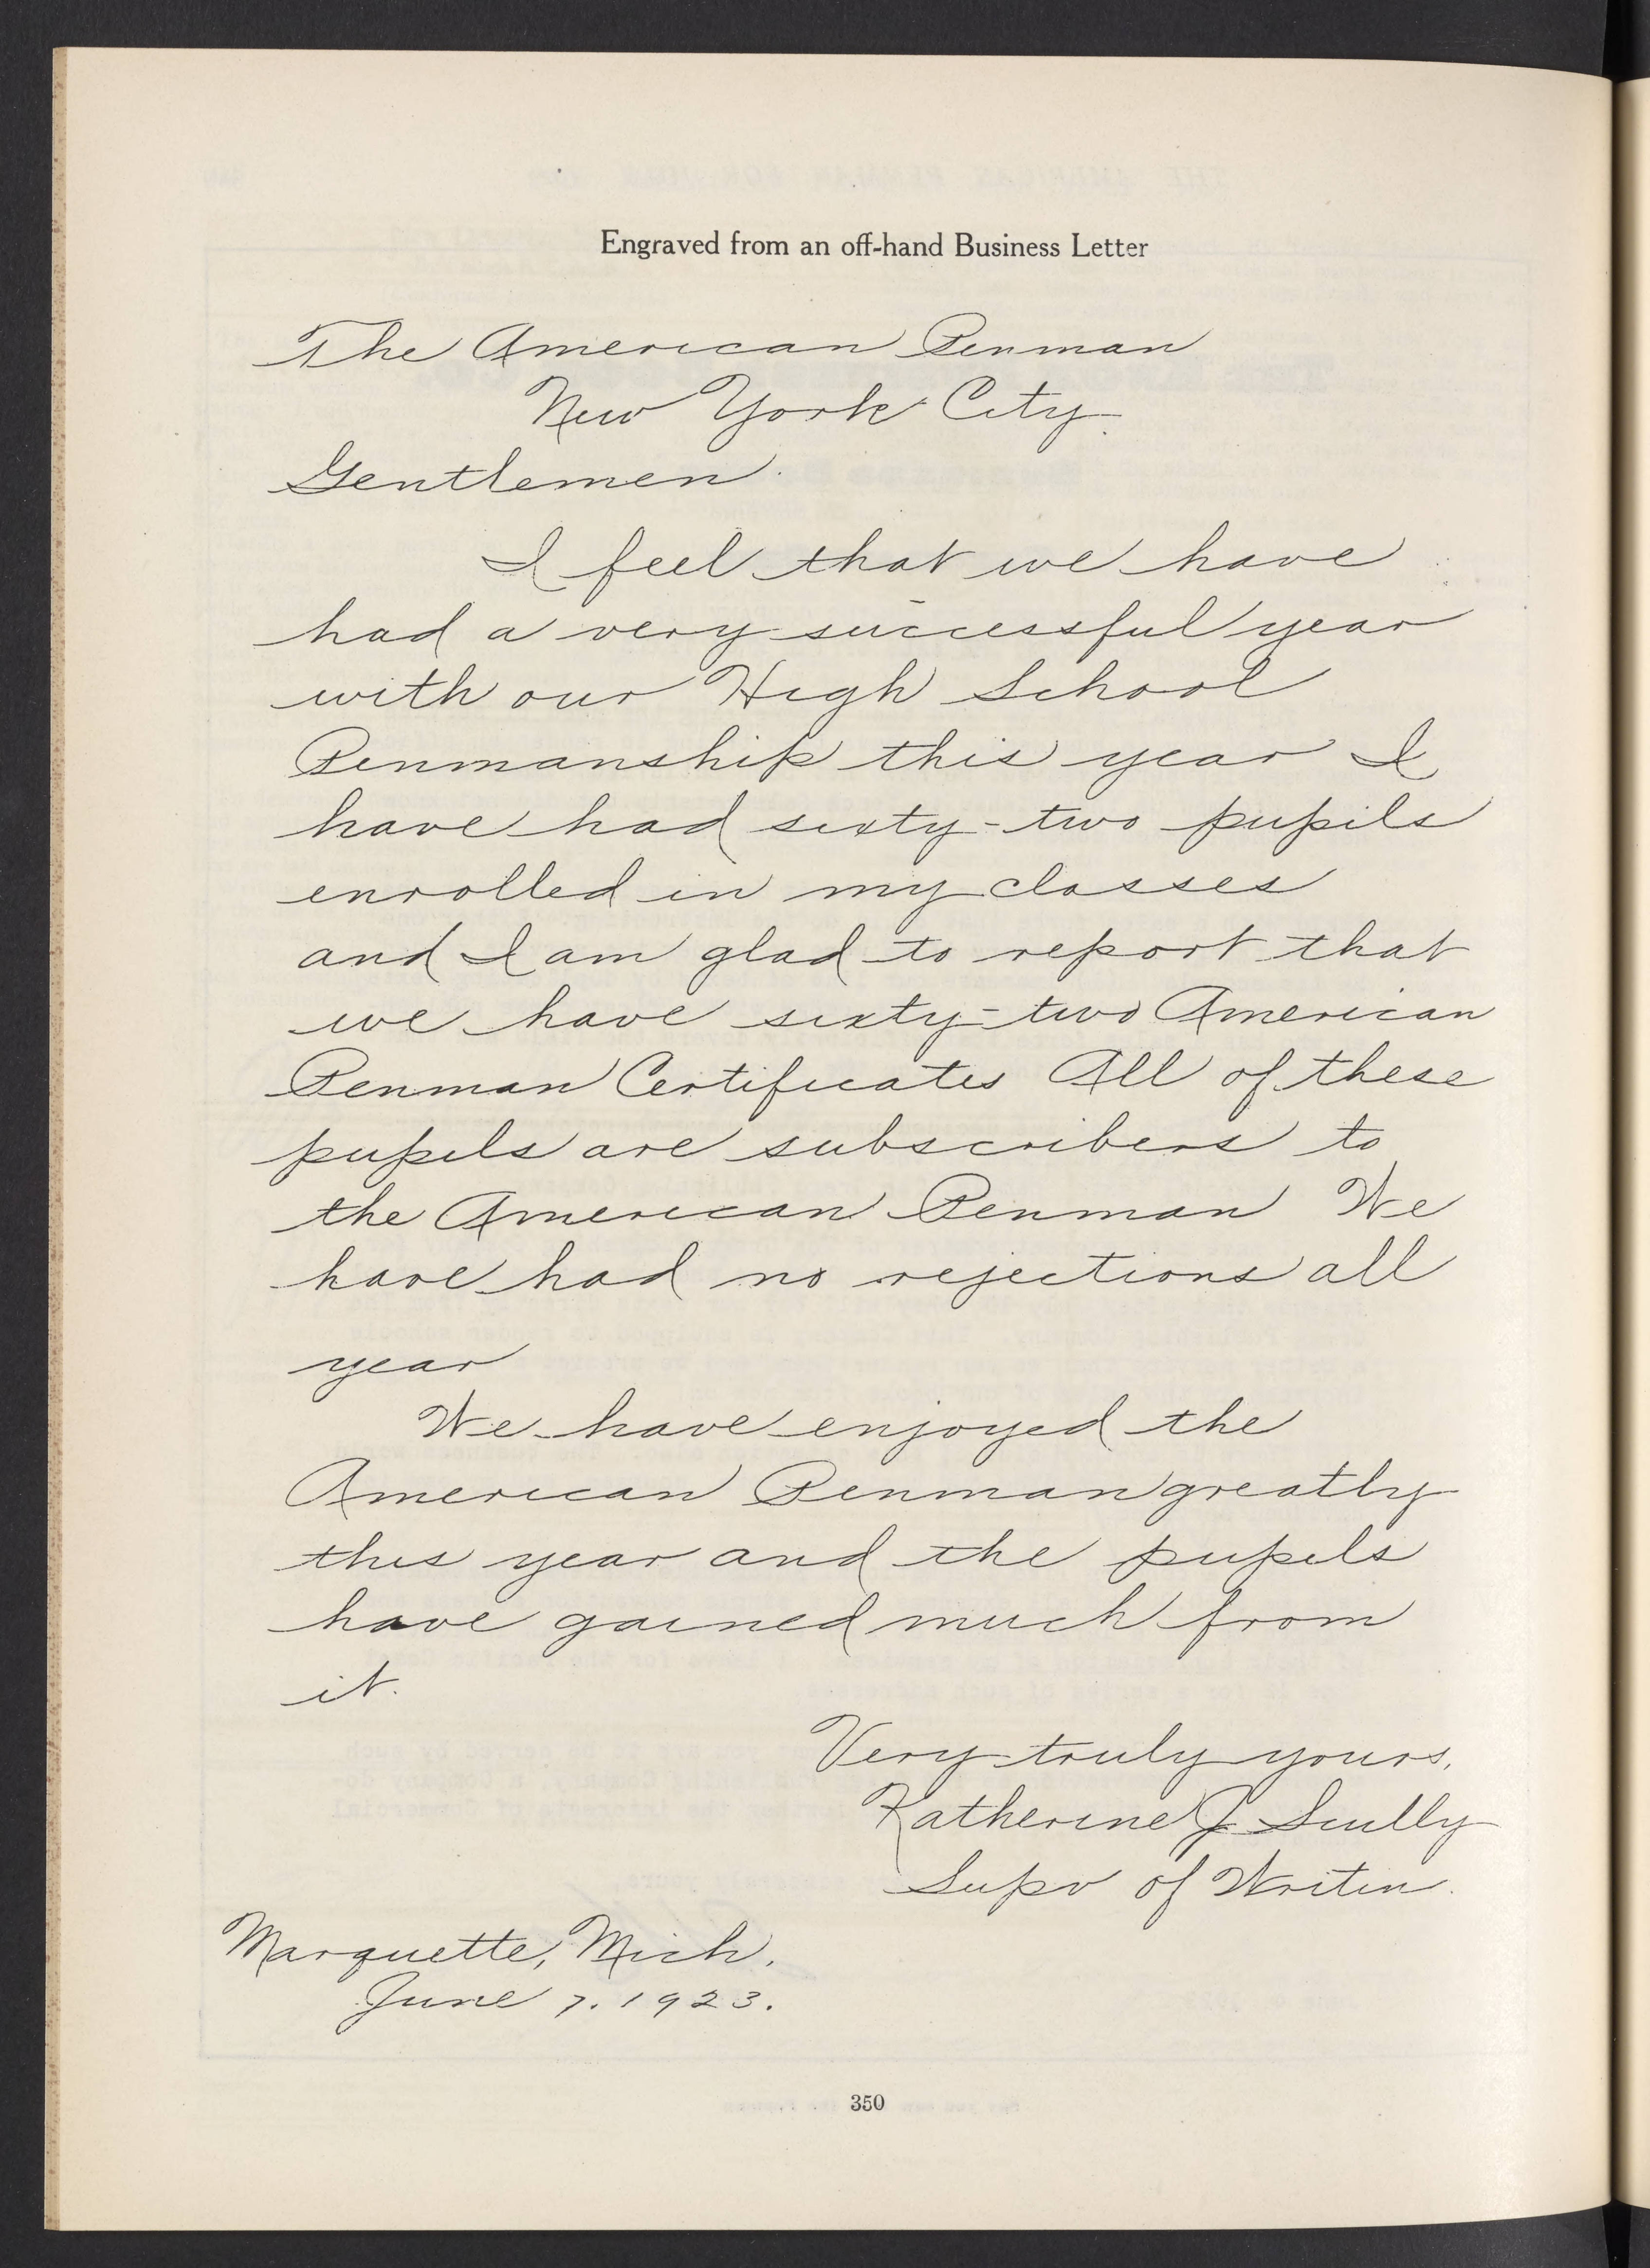 Engraved from an off-hand Business Letter
The American Penman
New York City.
Gentlemen.
I feel that we have
had a very successful year
with our High School
Penmanship this year I
have had sixty-two pupils
enrolled in my classes
and I am glad to report that
we have sixty-two American
Penman Certificates All of these
pupils are subscribers to
the American Penman We
have had no rejections all
year
We have enjoyed the
American Penman greatly
this year and the pupils
have gained much from
it.
Very truly yours,
Katherine J Scully
Supv of Writin.
Marquette, Mich.
June 7. 1923.
350